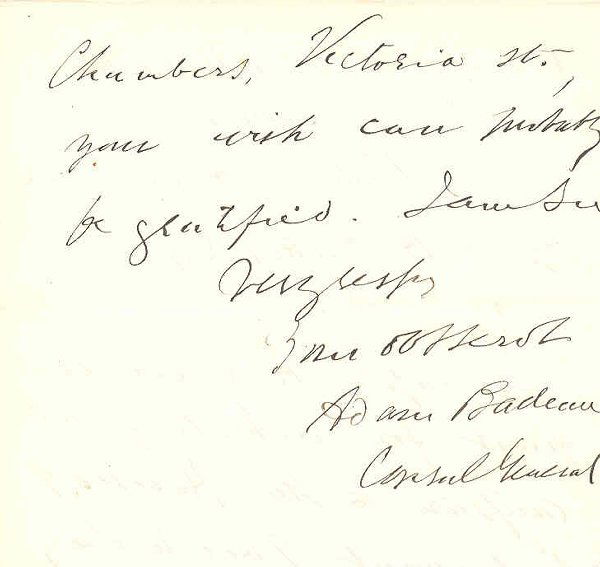 Chambers, Victoria St.,
your wish can probably
be gratified. I am Sir
Very respy
Your obt servt
Adam Badeau
Consul General